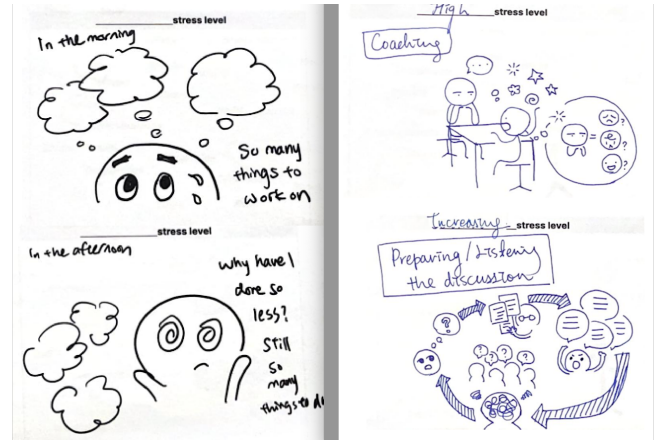 stress level
In the morning
So many
things to
work on
stress level
In the afternoon
why have I
done so
less?
still
so
many
things to do
High stress level
Coaching
...
?
=
?
?
Increasing stress level
Preparing/Listening
the discussion
?
? ? ? ?